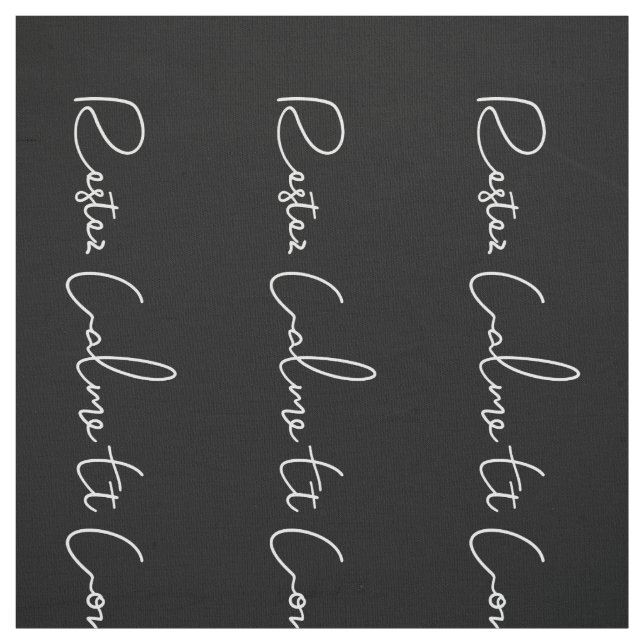 Restez Calme Et Con
Restez Calme Et Con
Restez Calme Et Con